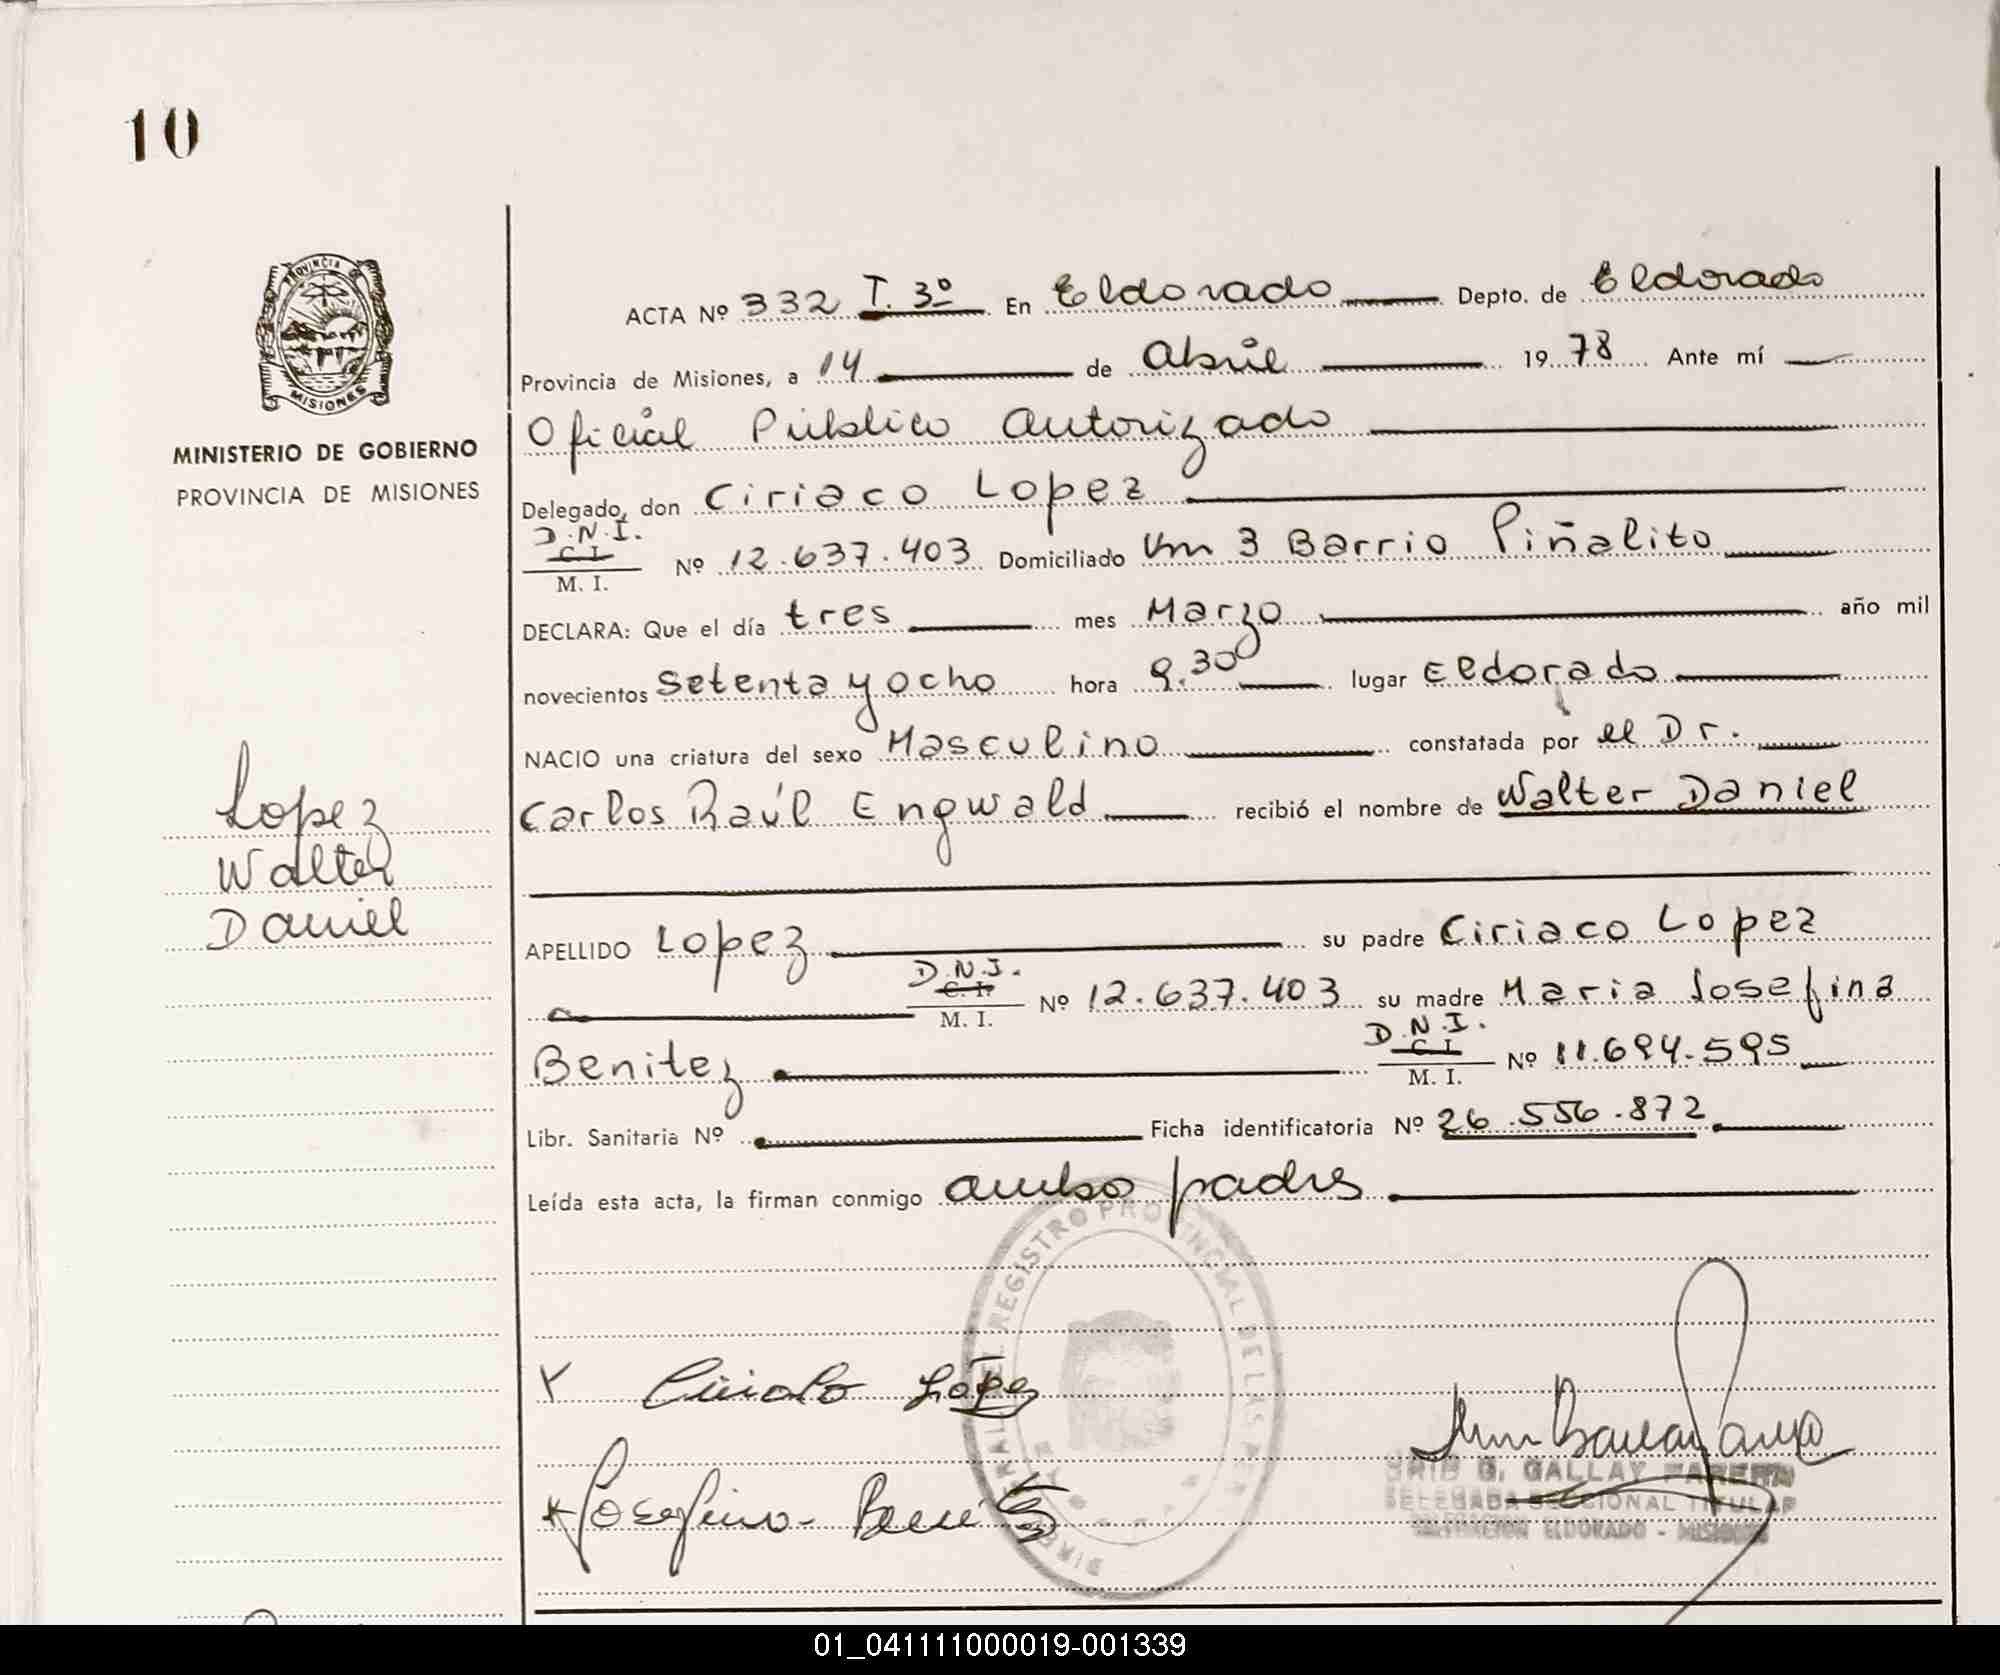 10
PROVINCIA DE
MISIONES
MINISTERIO DE GOBIERNO
PROVINCIA DE MISIONES
Lopez
Walter
Daniel
ACTA Nº 332 T. 3º En Eldorado Depto. de Eldorado
Provincia de Misiones, a 14 de Abril 1978 Ante mí
Oficial Público Autorizado
Delegado, don Ciriaco Lopez
D.N.I.
C. I.
M. I.
Nº 12.637.403 Domiciliado Km 3 Barrio Piñalito
DECLARA: Que el día tres mes Marzo año mil
novecientos setenta y ocho hora 9.30 lugar Eldorado
NACIO una criatura del sexo Masculino constatada por el Dr.
Carlos Raúl Engwald recibió el nombre de Walter Daniel
APELLIDO Lopez su padre Ciriaco Lopez
D.N.I.
C. I.
M. I.
Nº 12.637.403 su madre Maria Josefina
Benitez
D.N.I.
C. I.
M. I.
Nº 11.694.595
Libr. Sanitaria Nº Ficha identificatoria Nº 26.556.872
Leída esta acta, la firman conmigo ambo padres
REGISTRO PROVINCIAL DE LAS PER
Ciriaco López
Josefina Benitez
G. GALLAY
DELEGADA SECCIONAL TITULAR
DELEGACION ELDORADO - MISIONES
01_041111000019-001339